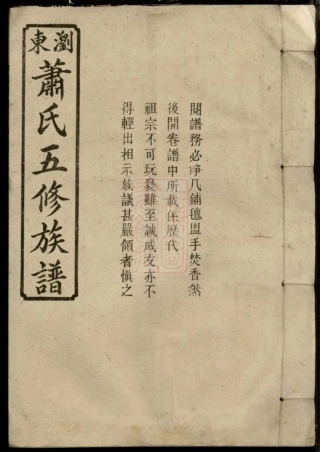 瀏東
蕭氏五修族譜
閱譜務必凈几鋪氊盥手焚香然
後開卷譜中所載係歷代
祖宗不可玩褻雖至誠戚友亦不
得輕出相示族議甚嚴領者愼之